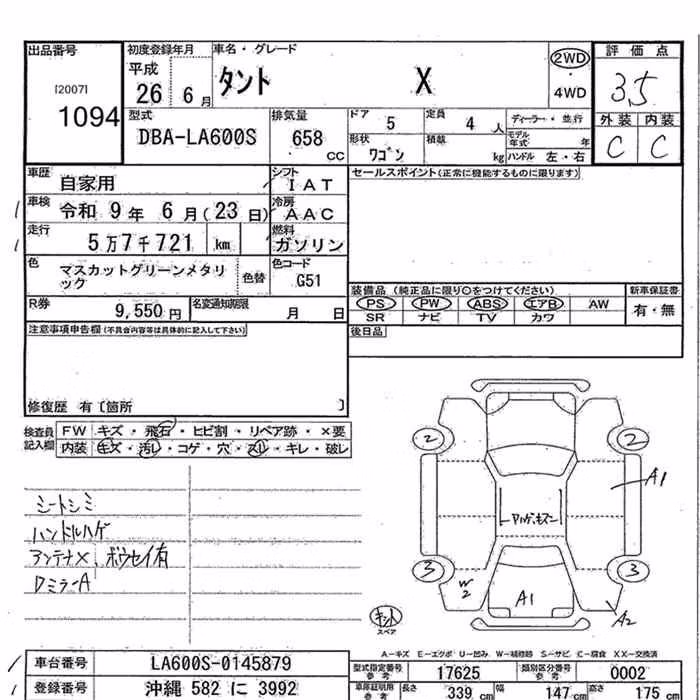 出品番号 初度登録年月 車名・グレード 評価点
[2007] 平成 タント X 2WD 3.5
1094 26 6月 ・ 4WD
型式 排気量 ドア 5 定員 4人 ディーラー・並行 外装 内装
DBA-LA600S 658 cc 形状 ワゴン 積載 kg モデル年式 年 ハンドル 左・右 C C
車歴 自家用 シフト IAT セールスポイント(正常に機能するものに限ります)
車検 令和 9年 6月(23日) 冷房 AAC
走行 5万7千721 km 燃料 ガソリン
色 マスカットグリーンメタリック 色替 色コード G51
装備品 (純正品に限り○をつけてください) 新車保証書
R券 9,550円 名変通知期限 月 日 PS PW ABS エアB AW 有・無
SR ナビ TV カワ
注意事項申告欄(不具合内容等は具体的に記入して下さい) 後日品
修復歴 有〔箇所 〕
検査員記入欄 FW キズ・飛石・ヒビ割・リペア跡・×要
内装 キズ・汚レ・コゲ・穴・スレ・キレ・破レ
2 2
A1
シートシミ
ハンドルハゲ
アンテナX、ボウセイ有
DミラーA
3 3
W2 A1 A2
スペア
A-キズ E-エクボ U-凹み W-補修跡 S-サビ C-腐食 XX-交換済
車台番号 LA600S-0145879 型式指定番号 参考 17625 類別区分番号 参考 0002
登録番号 沖縄 582 に 3992 車庫証明用 参考 長さ 339 cm 幅 147 cm 高さ 175 cm